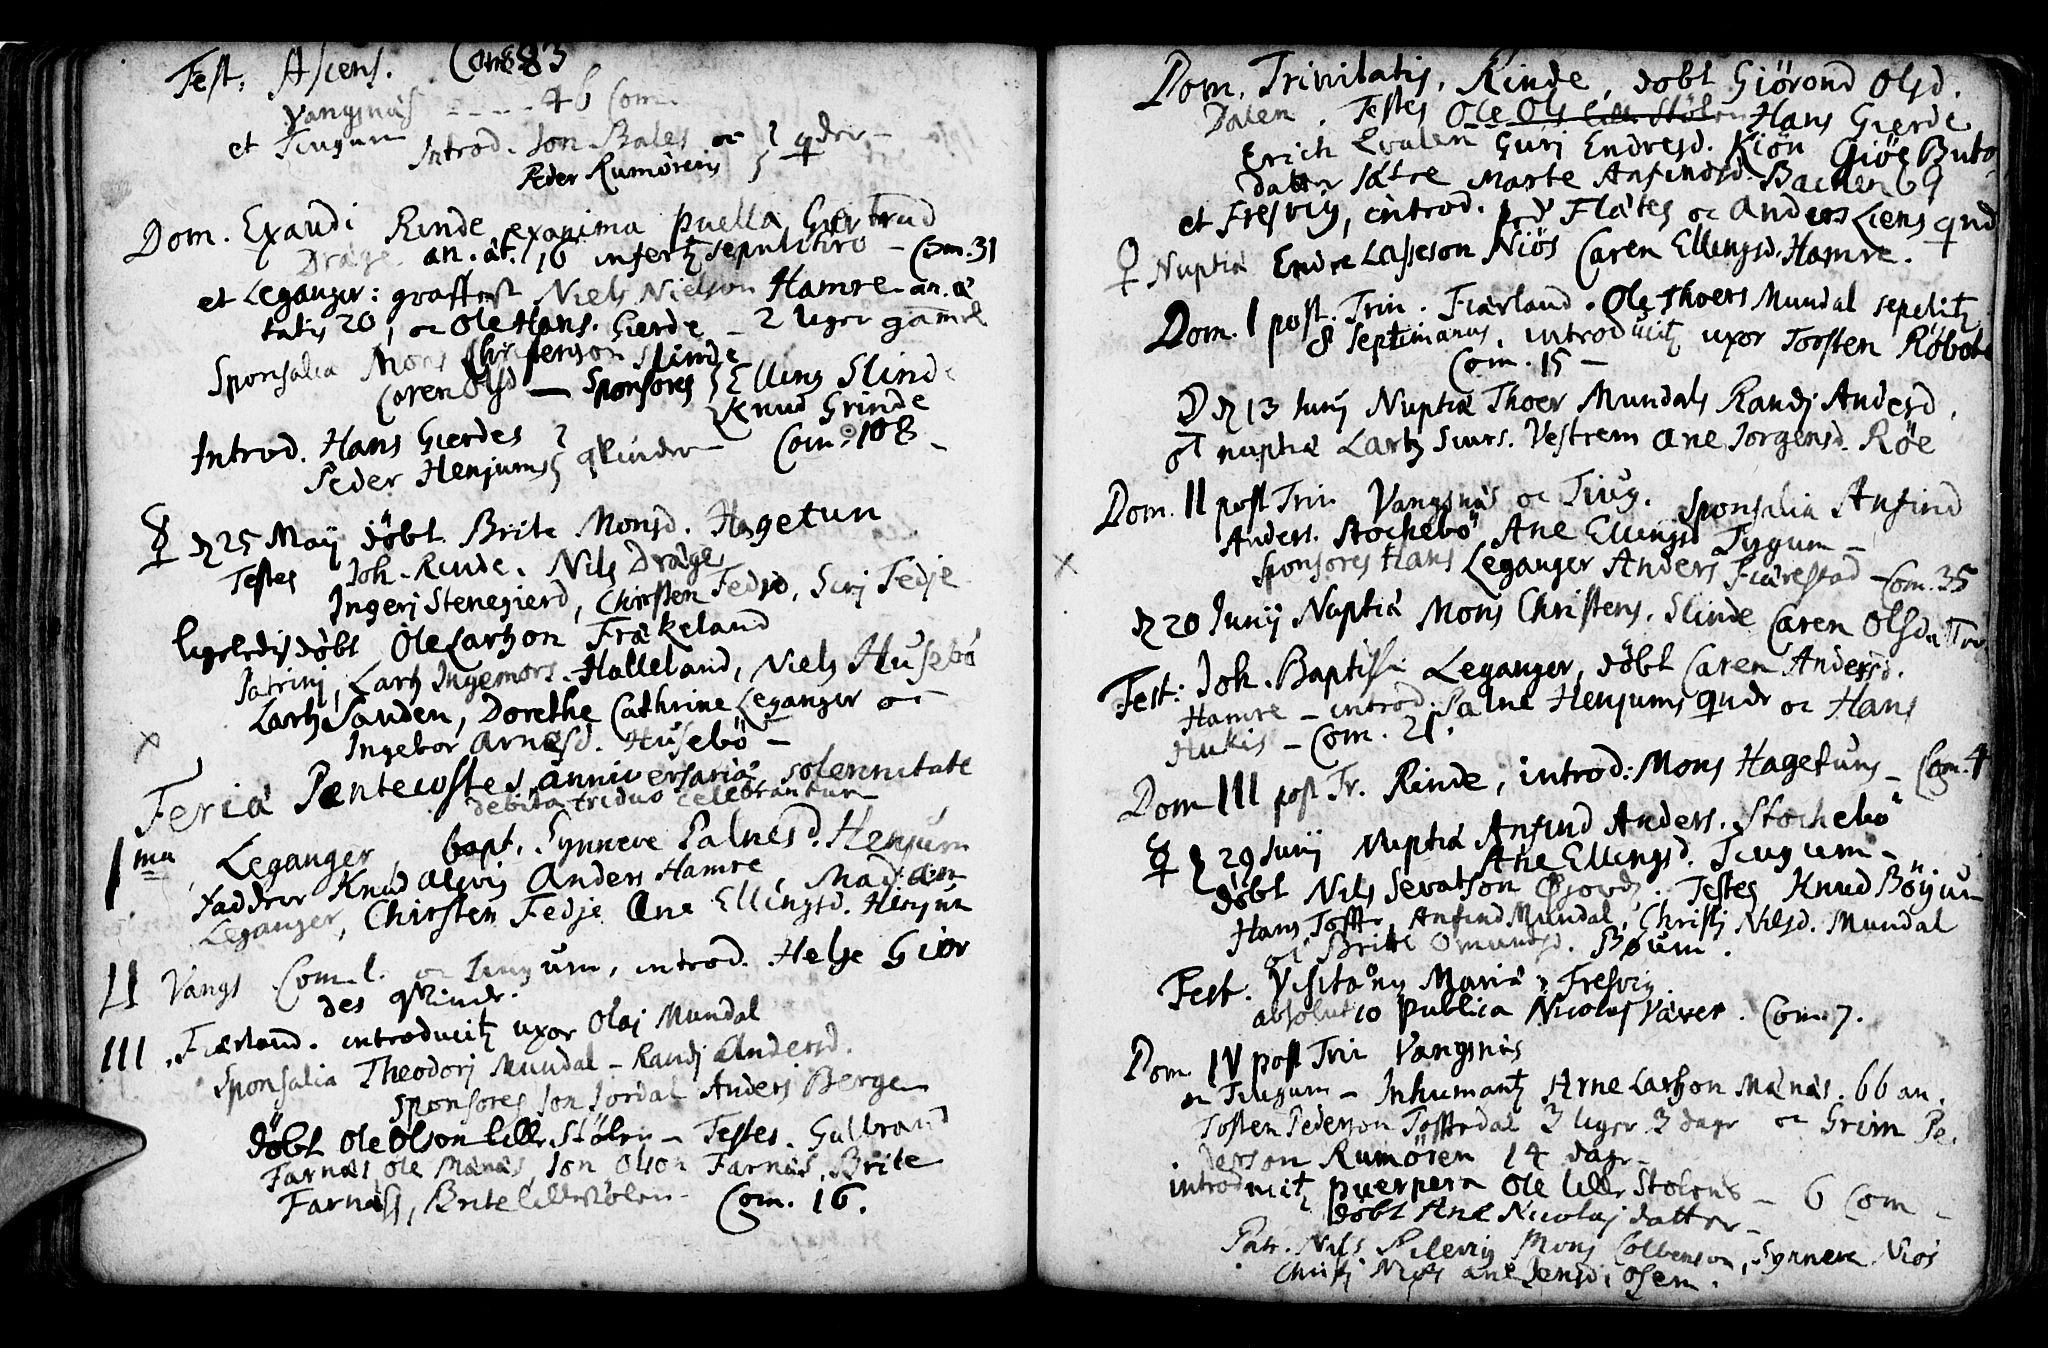 Fest. Ascens. Com 83
Vangsnäs - - - - 46 Com.
et Tiugum Introd. Jon Bales oc qder -
Peder Rumörens
Dom. Exaudi Rinde exanima puella Giertrud
Dräge an. ät. 16 infertz sepulchro - Com. 31
et Leganger: graffest Niels Nielson Hamre an. æ
tatis 20, oc Ole Hans. Gierde - 2 uger gamel
Sponsalia Mons Christenson Slinde
Caren Olsd — Sponsores Elling Slinde
Knud Grinde
Introd. Hans Gierdes
Peder Henjums qvinder Com. 108 -
☿ d 25 Maij döbt. Brite Monsd. Hagetun
Testes Joh. Rinde. Nils Dräge
Ingerj Stenegierd, Christen Fedje, Surj Fedje
ligeledis döbt Ole Larhson Frækeland
Patrinj, Larh Ingemors. Halleland, Niels Husebö
Larh Sanden, Dorethe Cathrine Leganger oc
Ingebor Arnesd. Husebö -
Feriæ Pentecostes anniversariæ solennitate
debita triduo celebrantur
I ma, Leganger, bapt. Synneve Palnesd. Henjum
Fadder Knud Alsvig Anders Hamre, Mad. an
Leganger, Chirsten Fedje Ane Ellingsd. Henjum
II Vangs Com. 1. oc Tiugum, introd. Helje Giör
des qvinde.
III. Fiærland. introducitz uxor Olaj Mundal
Sponsalia Theodorj Mundal - Randj Andersd.
Sponsores Jon Jordal Anders Berge
döbt Ole Olson lille Stölen - Testes. Gulbrand
Farnæs, Ole Mænæs, Jon Olson Farnæs, Brite
Farnæs, Brite lillestölen - Com. 16.
Dom. Trinitatis, Rinde, döbt Giörond Olsd.
Dalen. Testes Ole Ols lille Stölen Hans Gierde
Erich Evalen Gurj Endresd. Kiön Giöe Buto
datter Sætre Marte Anfindsd. Bachen 69
et Fresvig, introd. Flætes oc Anders Liens qnd
♀ Nuptiæ Endre Lasseson Niös Caren Ellingsd. Hamre.
Dom. I post. Trin. Fiærland. Ole Thoers Mundal sepelitz
8 septimanus, introducitz uxor Torsten Röbote
Com. 15 -
☽ d 13 Junij Nuptiæ Thoer Mundals Randj Andersd.
♂ nuptiæ Larh Siurs. Vestrem Ane Jorgensd. Röe
Dom. II post Trin Vangsnäs oc Tiug. Sponsalia Anfind
Anders. Stochebö Ane Ellingsd Tygum -
Sponsores Hans Leganger Anders Fiærestad - Com. 35
d 20 Junij Nuptiæ Mons Christens. Slinde Caren Olsdatter
Fest: Joh. Baptistæ Leganger, döbt Caren Andersd.
Hamre - introd. Palne Henjums qndr oc Hans
Hukis - Com. 21.
Dom III post Tr. Rinde, introd: Mons Hagetuns - Com. 4
☿ d 29 Junij Nuptiæ Anfind Anders. Stochebö
Ane Ellingsd. Tiugum -
döbt Nils Sevatson. Testes Knud Böyum
Hans Tofft. Anfind Mundal, Christj Nilsd. Mundal
oc Brite Omundsd. Böum.
Fest. Visitations Mariæ, Fresvig.
absolutio publica Nicolaj Väver. Com. 7.
Dom. IV post Trin Vangsnäs
oc Tiugum - Inhumantz Arne Larhson Mänäs. 66 an.
Tosten Pederson Tofftedal 3 uger 3 dage oc Grim Pe-
derson Rumören 14 dage -
introducitz puerpera Ole lille Stölens - 6 Com -
döbt Ane Nicolaj datter -
Patr. Nils Mons Colbenson, Synneve Niös
Christj Niös Ane Jensd. Osem.